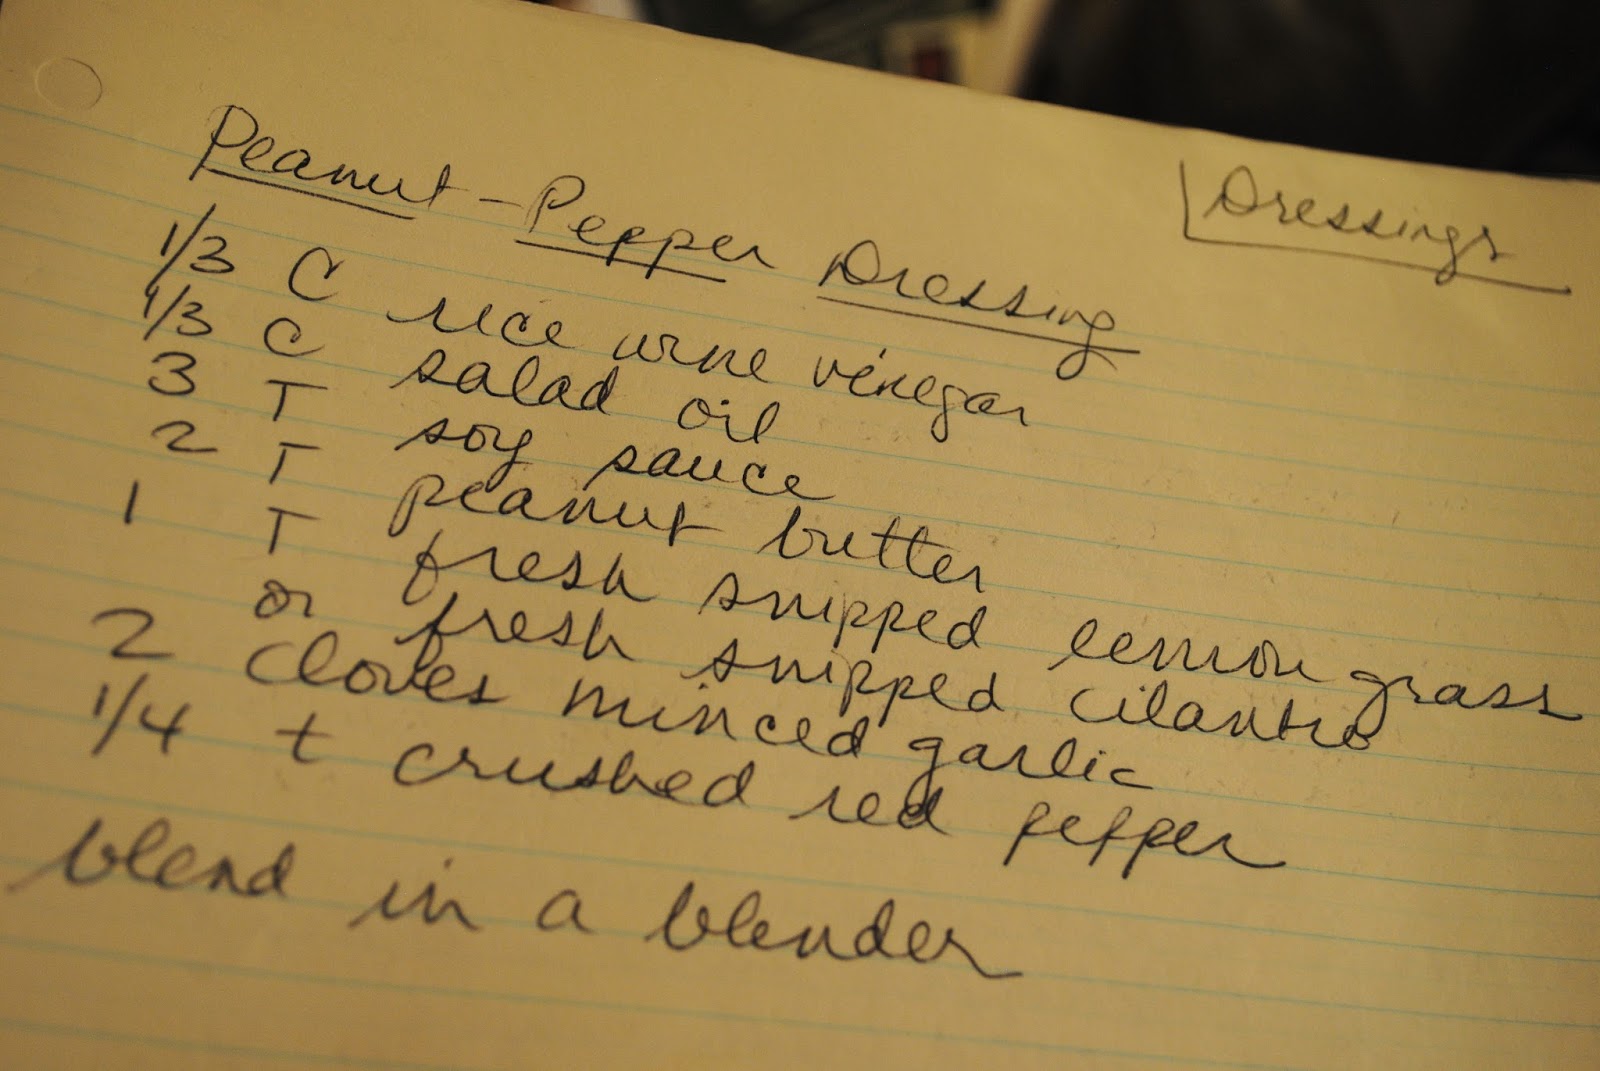 Dressings
Peanut-Pepper Dressing
1/3 C rice wine vinegar
1/3 C salad oil
3 T soy sauce
2 T peanut butter
1 T fresh snipped lemon grass
or fresh snipped cilantro
2 cloves minced garlic
1/4 t crushed red pepper
blend in a blender